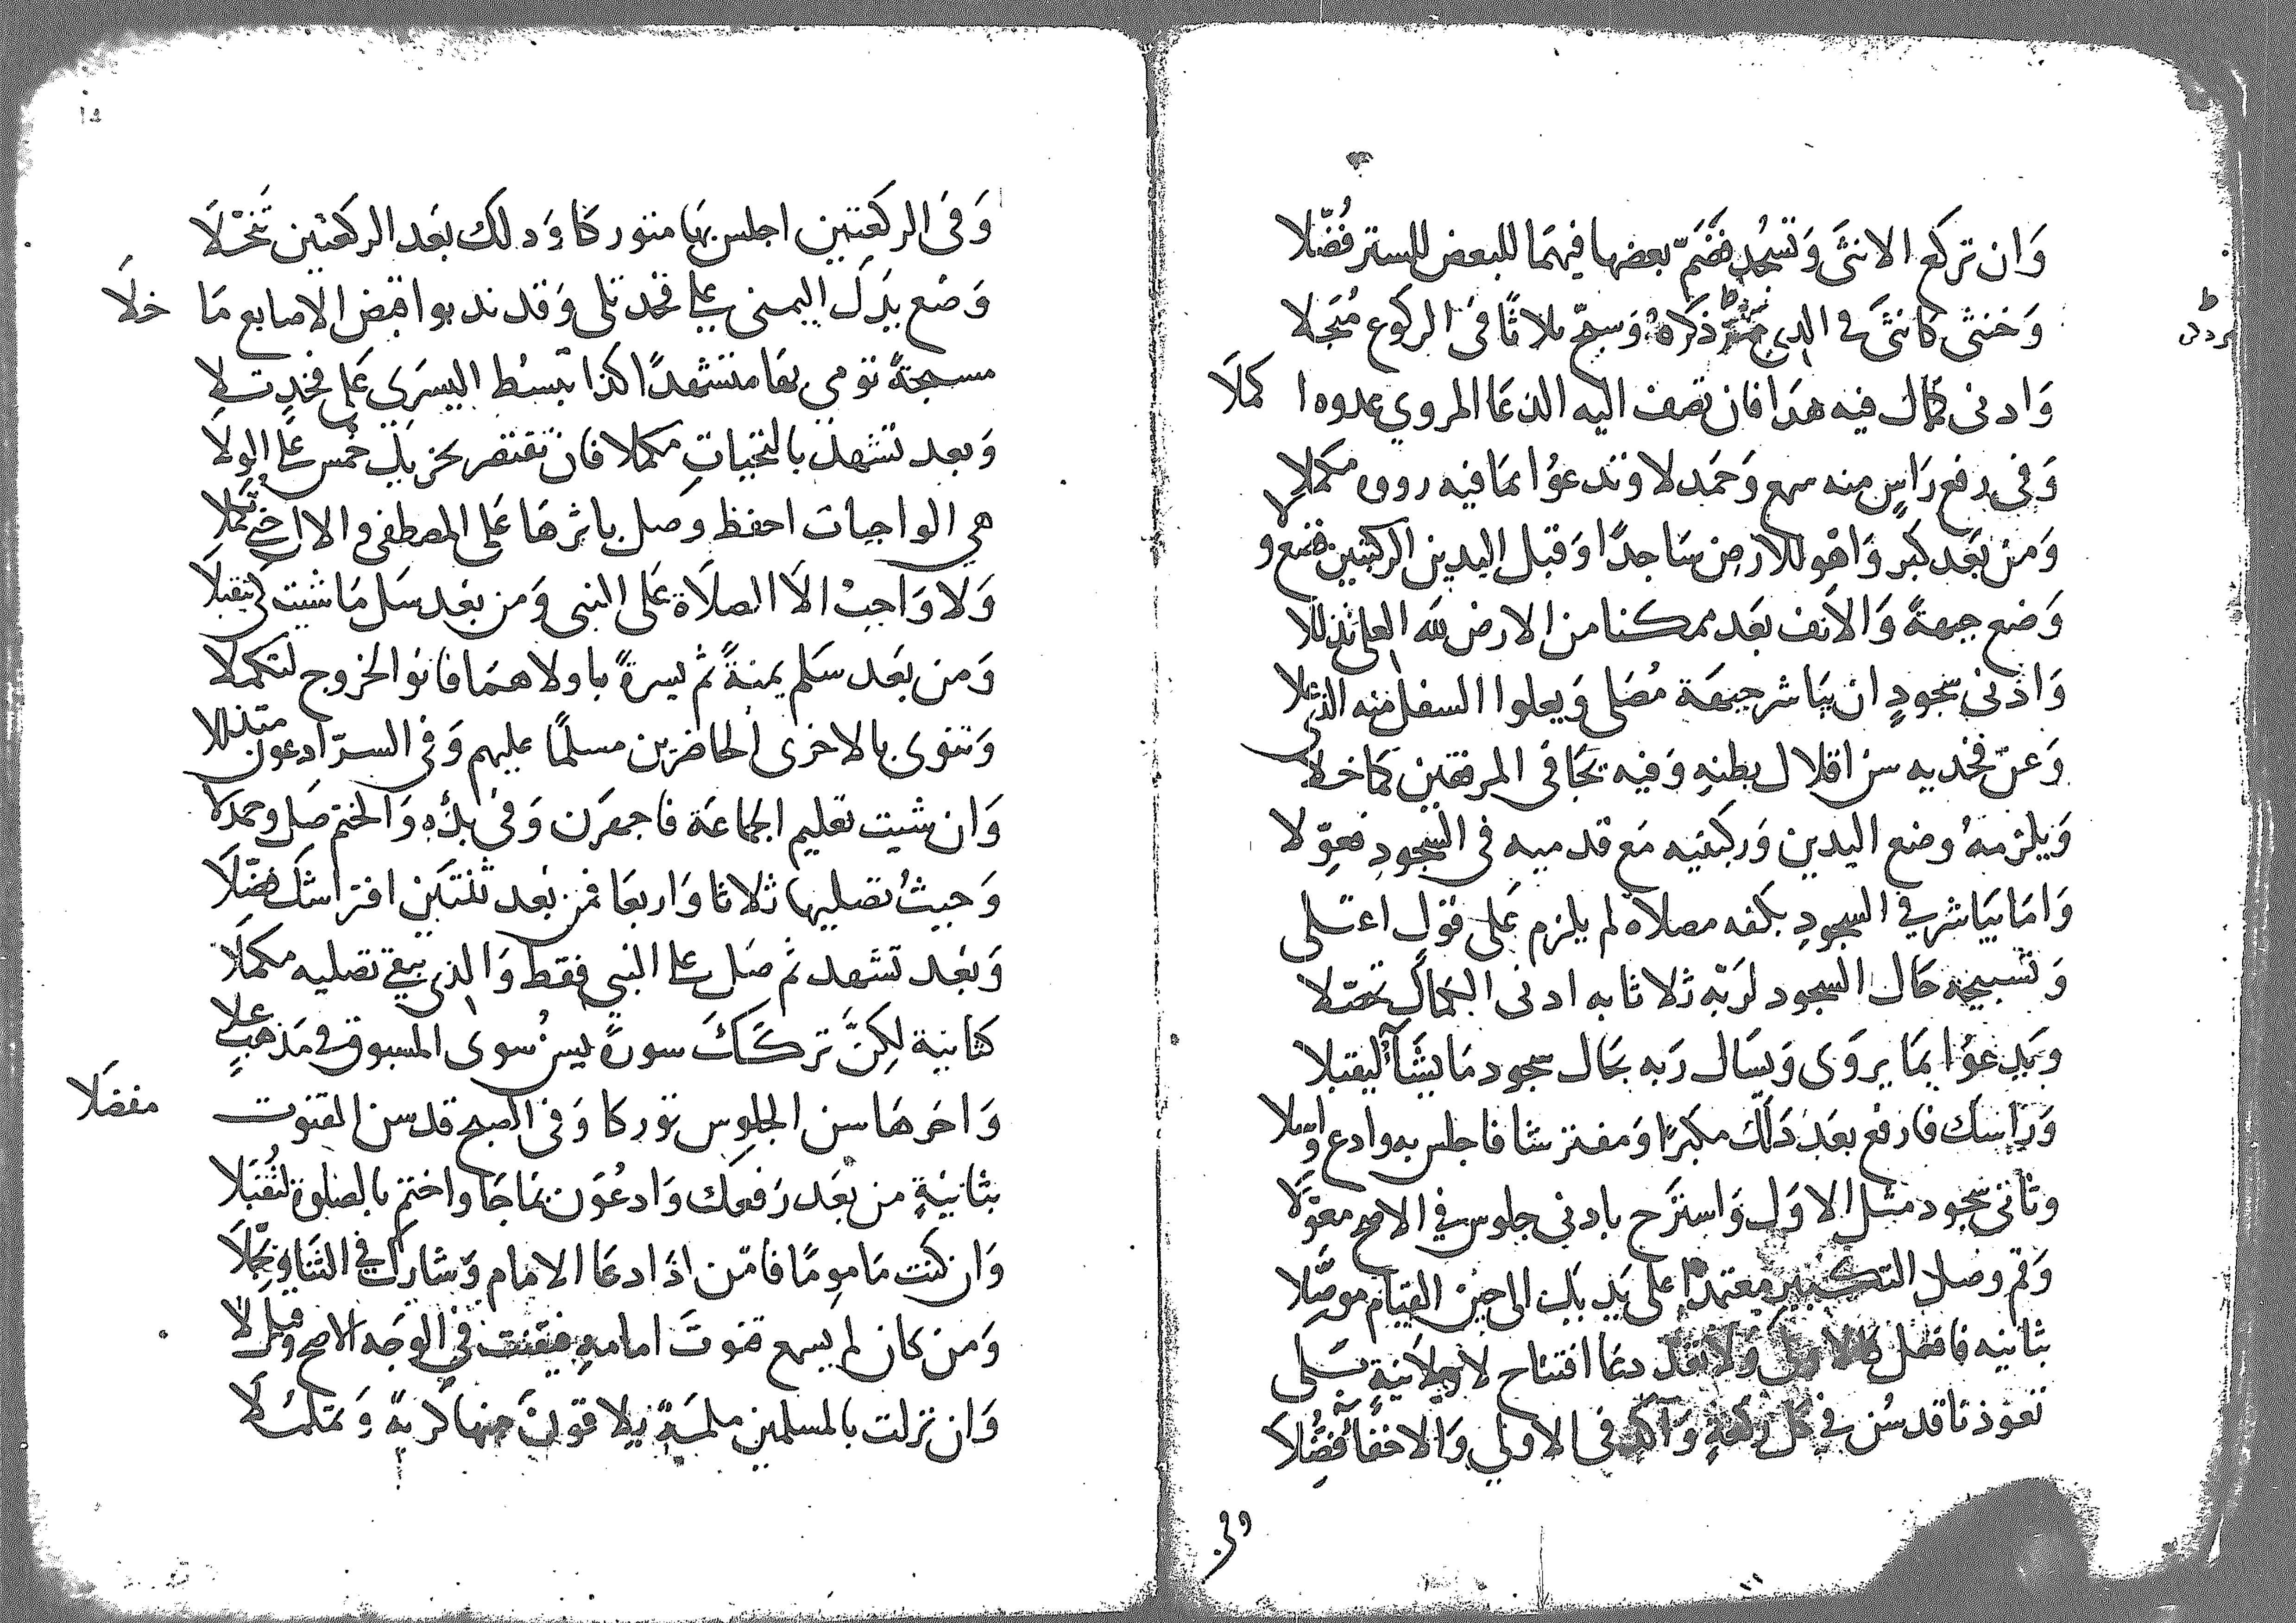 وَان تركع الانثَى وَتسجُد فضَمّ بعضها فيهمَا للبعض للستر فُضّلا
وَخنثى كانثَى في الذي مرّ ذكرَهُ وَسبّح ثلاثًا فى الركوع مُبَجّلا
وَادنى كمال فيه هذَا فان تضف اليه الدعَا المروي عدوه اكملَا
وَفى رفع رَاسٍ منه سمع وَحَمدلا وَتدعوُا بمَا فيه رووه مكملا
وَمن بَعد كبر وَاهو للارض سَاجدًا وَقبل اليدين الركبتين فضع ولا
وَضع جبهةً وَالانف بَعد ممكنا من الارض لله العلى تذللا
وَادنى سجودٍ ان يبَاشر جبهَة مُصَلى وَيعلوا السفل منه الذي علا
وَعن فخديه سن اقلال بطنهِ وَفيه يجَافى المرفقين كمَا خلا
وَيلزمهُ وضع اليدين وَركبتيه مَع قدميه فى السجودِ فعوّلا
وَامَا يبَاشر في السجودِ بكفه مصلاهُ لم يلزم عَلى قولٍ اعتلى
وَتسبيحه حَال السجود لرَبّه ثلاثا به ادنى الكمال تحصّلا
وَيدعوُا بمَا يروَى وَيسَال رَبه بحَال سجود مَا يشَآ ليقبلا
وَرَاسك فارفع بعَد ذَلك مكبرًا وَمفترشا فاجلس به وادع
وثانى سجود مثل الاوَل وَاسترح بادنى جلوس في الاصح معوّلا
وَقم وصل التكبير معتمدًا على يديك الى حين القيام موصّلا
بثانيه فافعل كالاولى وَلا تعد دعَا افتتاح لا ثانيةٍ تلى
تعوذنا قد سُن في كل ركعةٍ وَآكد فى الاولي وَالاخفا فُضّلا
وفى
وَفى الركعتين اجلس بهَا متوركا وَذلك بعَد الركعَتين
وَضع يدَكَ اليمنى على فخد تلى وَقد ندبوا قبض الاصابع مَا خلَا
مسبحةً تومي بهَا متشهدًا كذا تبسُط اليسرَى عَلى فخدٍ تلا
وَبعد تشهد بالتحياتِ مكملا فان تقتصر يجزيك خمس على الولَا
هي الواجبات احفظ وَصل باثرهَا عَلى المصطفى والال
وَلا وَاجبْ الَا الصلَاة عَلى النبى وَمن بعَد سَل مَا شيت كى يتقبلَا
وَمن بَعد سَلم يمنةً ثم يسرةً باولاهمَا فانو الخروج لتكملا
وَتنوى بالاخرى الحاضرين مسلمًا عليهم وَفى السرّ ادعون متذللا
وَان شيت تعليم الجماعَة فاجهرَن وَفى بدْءِهِ وَالختم صَل وحمدلا
وَحيثُ تصليها ثلاثا وَاربعَا فمن بَعد ثنتَين افتراشكَ فضّلَا
وَبعَد تشهد ثم صَل على النبي فقط وَالذى يبقى تصليه مكملَا
كثانية لكِنّ تركَكَ سورةً يسنُ سوى المسبوق في مَذهبٍ علا
وَاخرهَا سن الجلوس توركا وَفى الصبح قد سن القنوت مفضلَا
بثانيةٍ من بعَد رَفعك وَادعُوَن بمَا جَا واختم بالصلوة لتُقبَلا
وَان كنت مَامومًا فامّن اذَا دعَا الامام وَشارك في الثنَا
وَمَن كان لم يسمع قنوتَ امامهِ فيقنت في الوجَه الاصح وقيل لا
وَان نزلت بالمسلمين ملمَةٌ